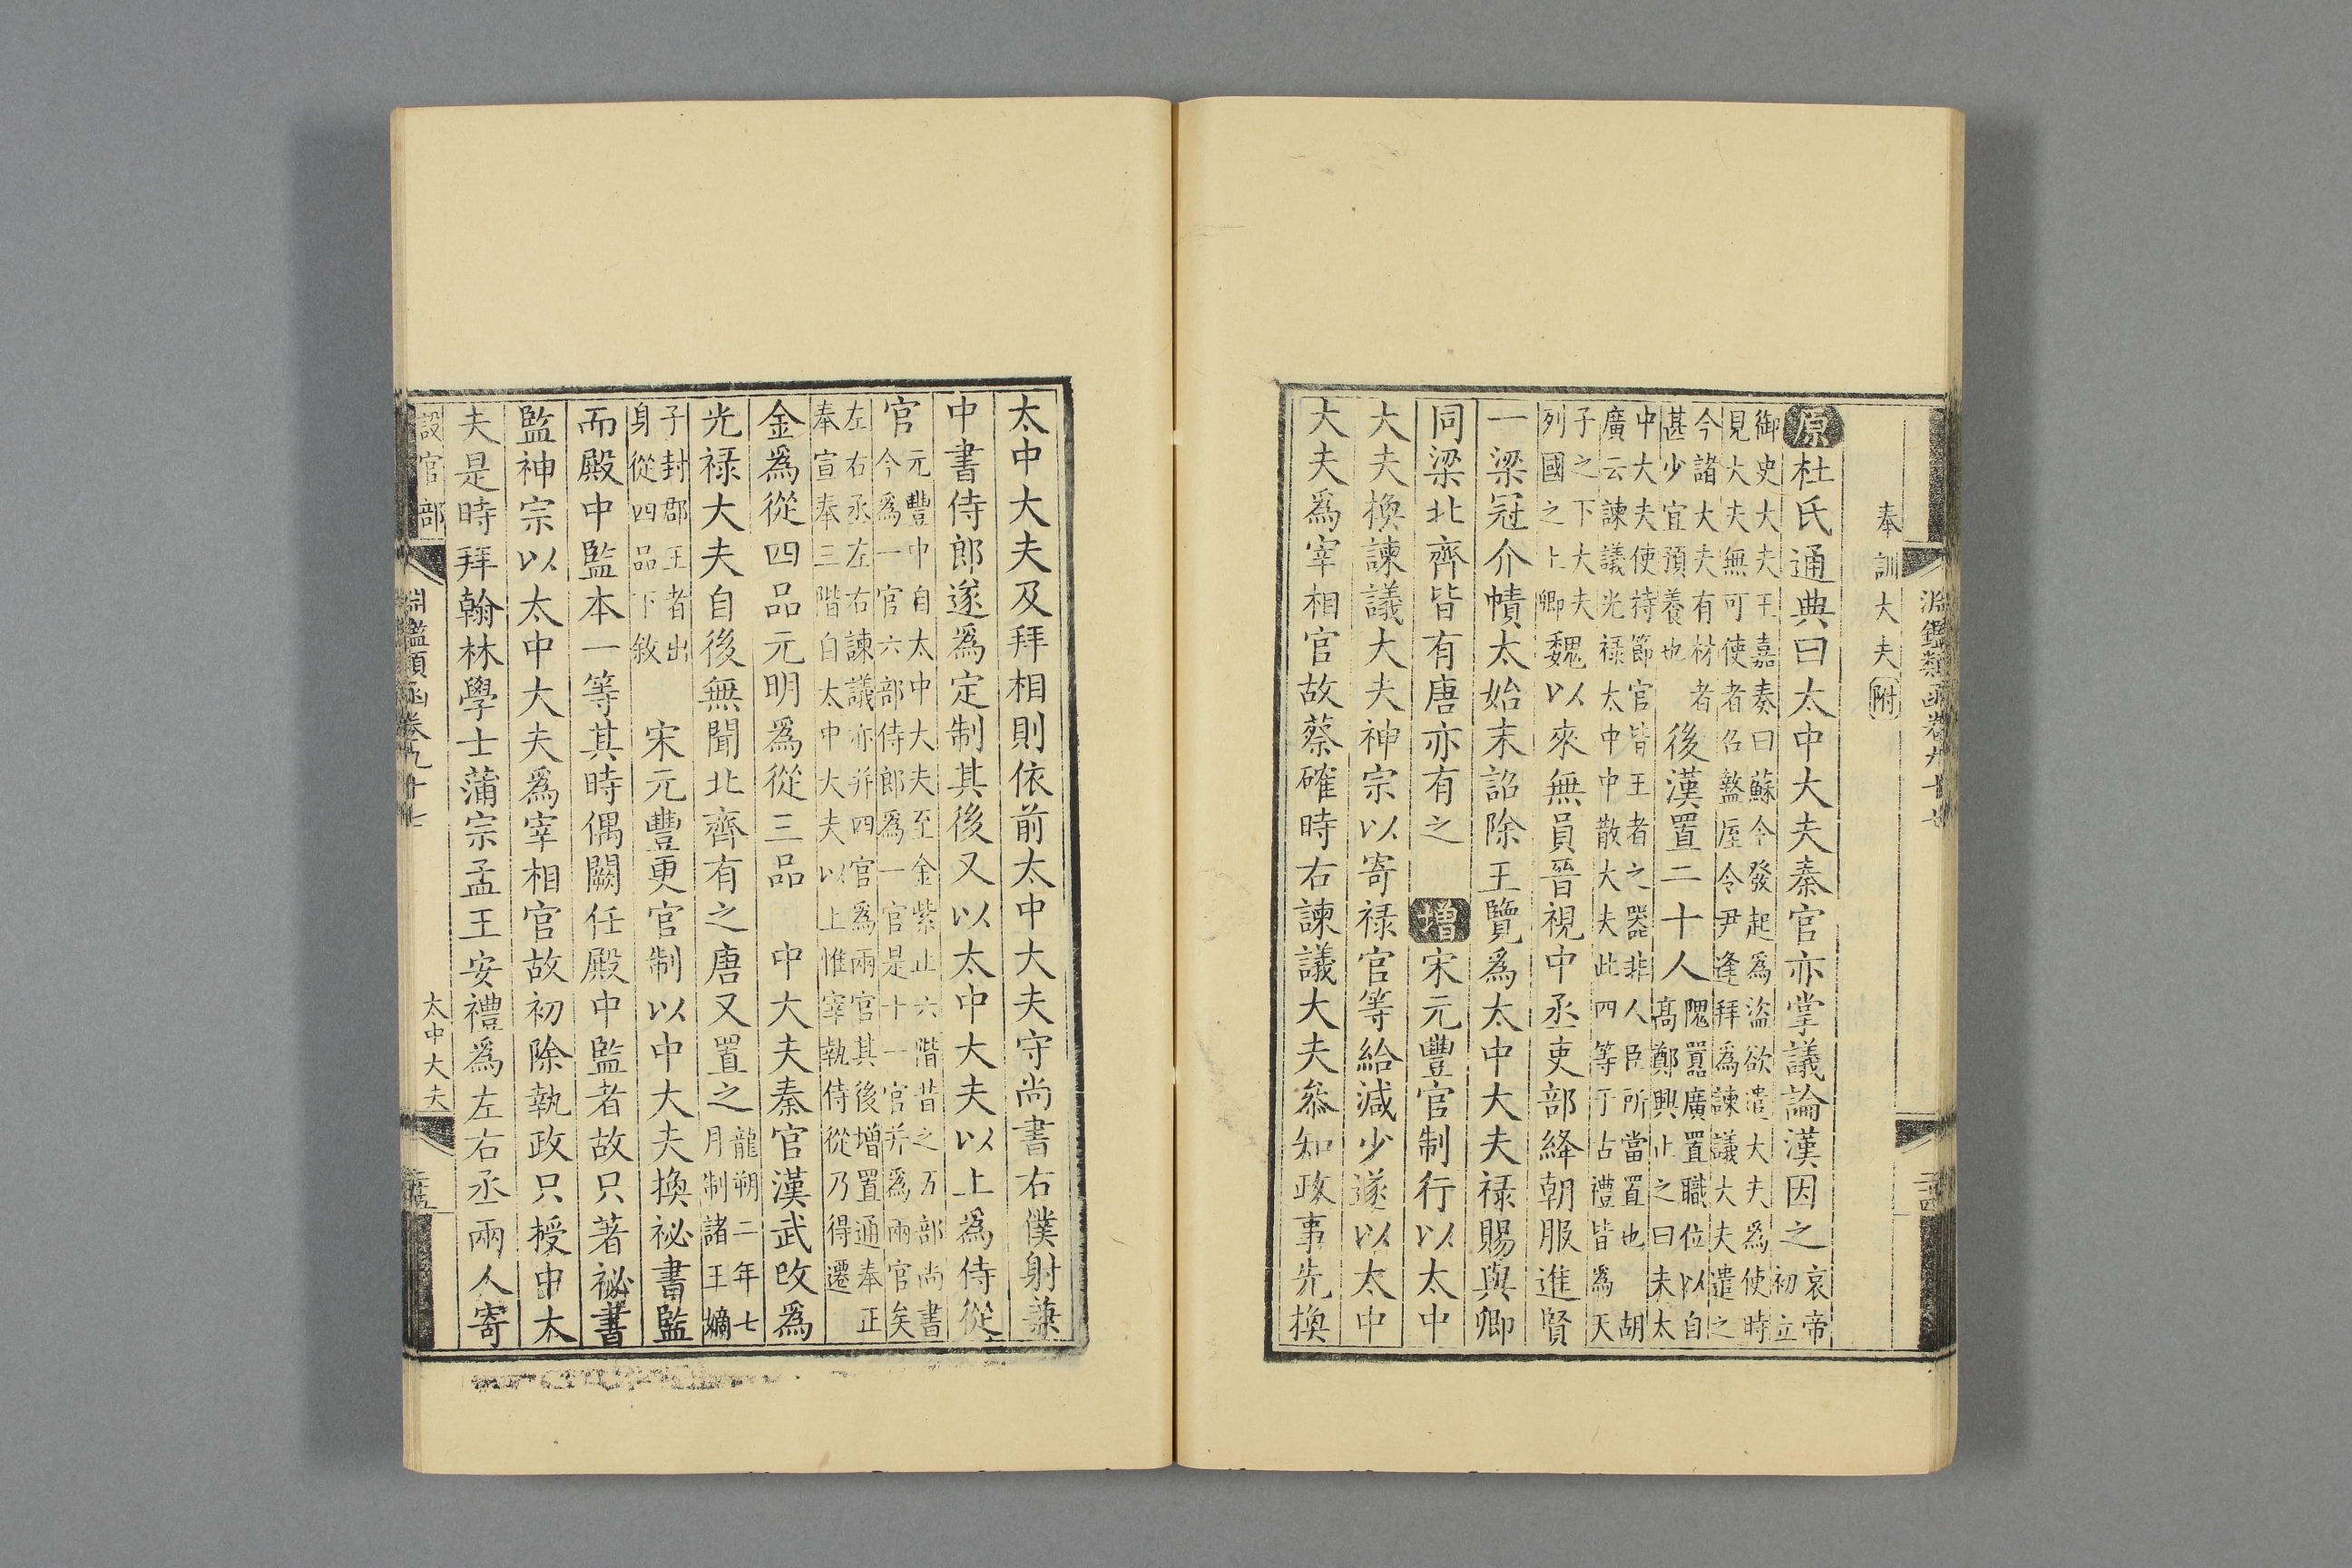 淵鑑類函卷九十七
奉訓大夫附
原杜氏通典曰太中大夫秦官亦掌議論漢因之哀帝
初立
御史大夫王嘉奏曰蘇令發起為盜欲遣大夫為使時
見大夫無可使者召盩厔令尹逢拜為諫議大夫遣之
今諸大夫有材者
甚少宜預養也
後漢置二十人隗囂廣置職位以自
高鄭興止之曰夫太
中大夫使持節官皆王者之器非人臣所當置也　胡
廣云諫議光祿太中中散大夫此四等于古禮皆為天
子之下大夫
列國之上卿
魏以來無員晉視中丞吏部絳朝服進賢
一梁冠介幘太始末詔除王覽爲太中大夫禄賜與卿
同梁北齊皆有唐亦有之　增宋元豐官制行以太中
大夫換諫議大夫神宗以寄禄官等給減少遂以太中
大夫爲宰相官故蔡確時右諫議大夫叅知政事先換
太中大夫及拜相則依前太中大夫守尚書右僕射兼
中書侍郎遂爲定制其後又以太中大夫以上爲侍從
官元豐中自太中大夫至金紫止六階昔之五部尚書
今爲一官六部侍郎爲一官是十一官并爲兩官矣
左右丞左右諫議亦并四官爲兩官其後增置通奉正
奉宣奉三階自太中大夫以上惟宰執侍從乃得遷
金爲從四品元明爲從三品　中大夫秦官漢武改爲
光禄大夫自後無聞北齊有之唐又置之龍朔二年七
月制諸王嫡
子封郡王者出
身從四品下敘
宋元豐更官制以中大夫換祕書監
而殿中監本一等其時偶闕任殿中監者故只著祕書
監神宗以太中大夫爲宰相官故初除執政只授中大
夫是時拜翰林學士蒲宗孟王安禮爲左右丞兩人寄
設官部
淵鑑類函卷九十七
太中大夫